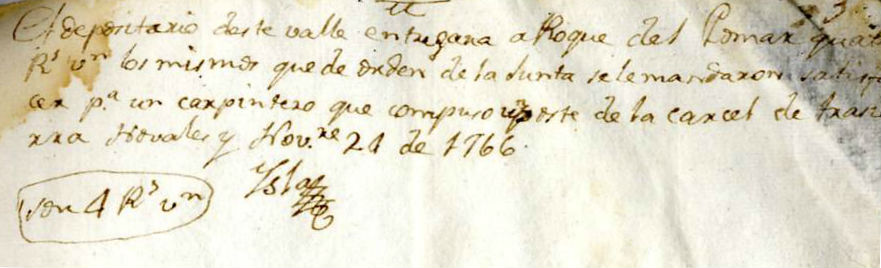 El depositario deste valle entregara a Roque del Pomar quat
Rs vn los mismos que de orden de la Junta se le mandaron satisf
cer pa un carpintero que compuso poste de la carcel de tras
rra Novales y Nov.re 21 de 1766
Ysla
son 4 Rs vn